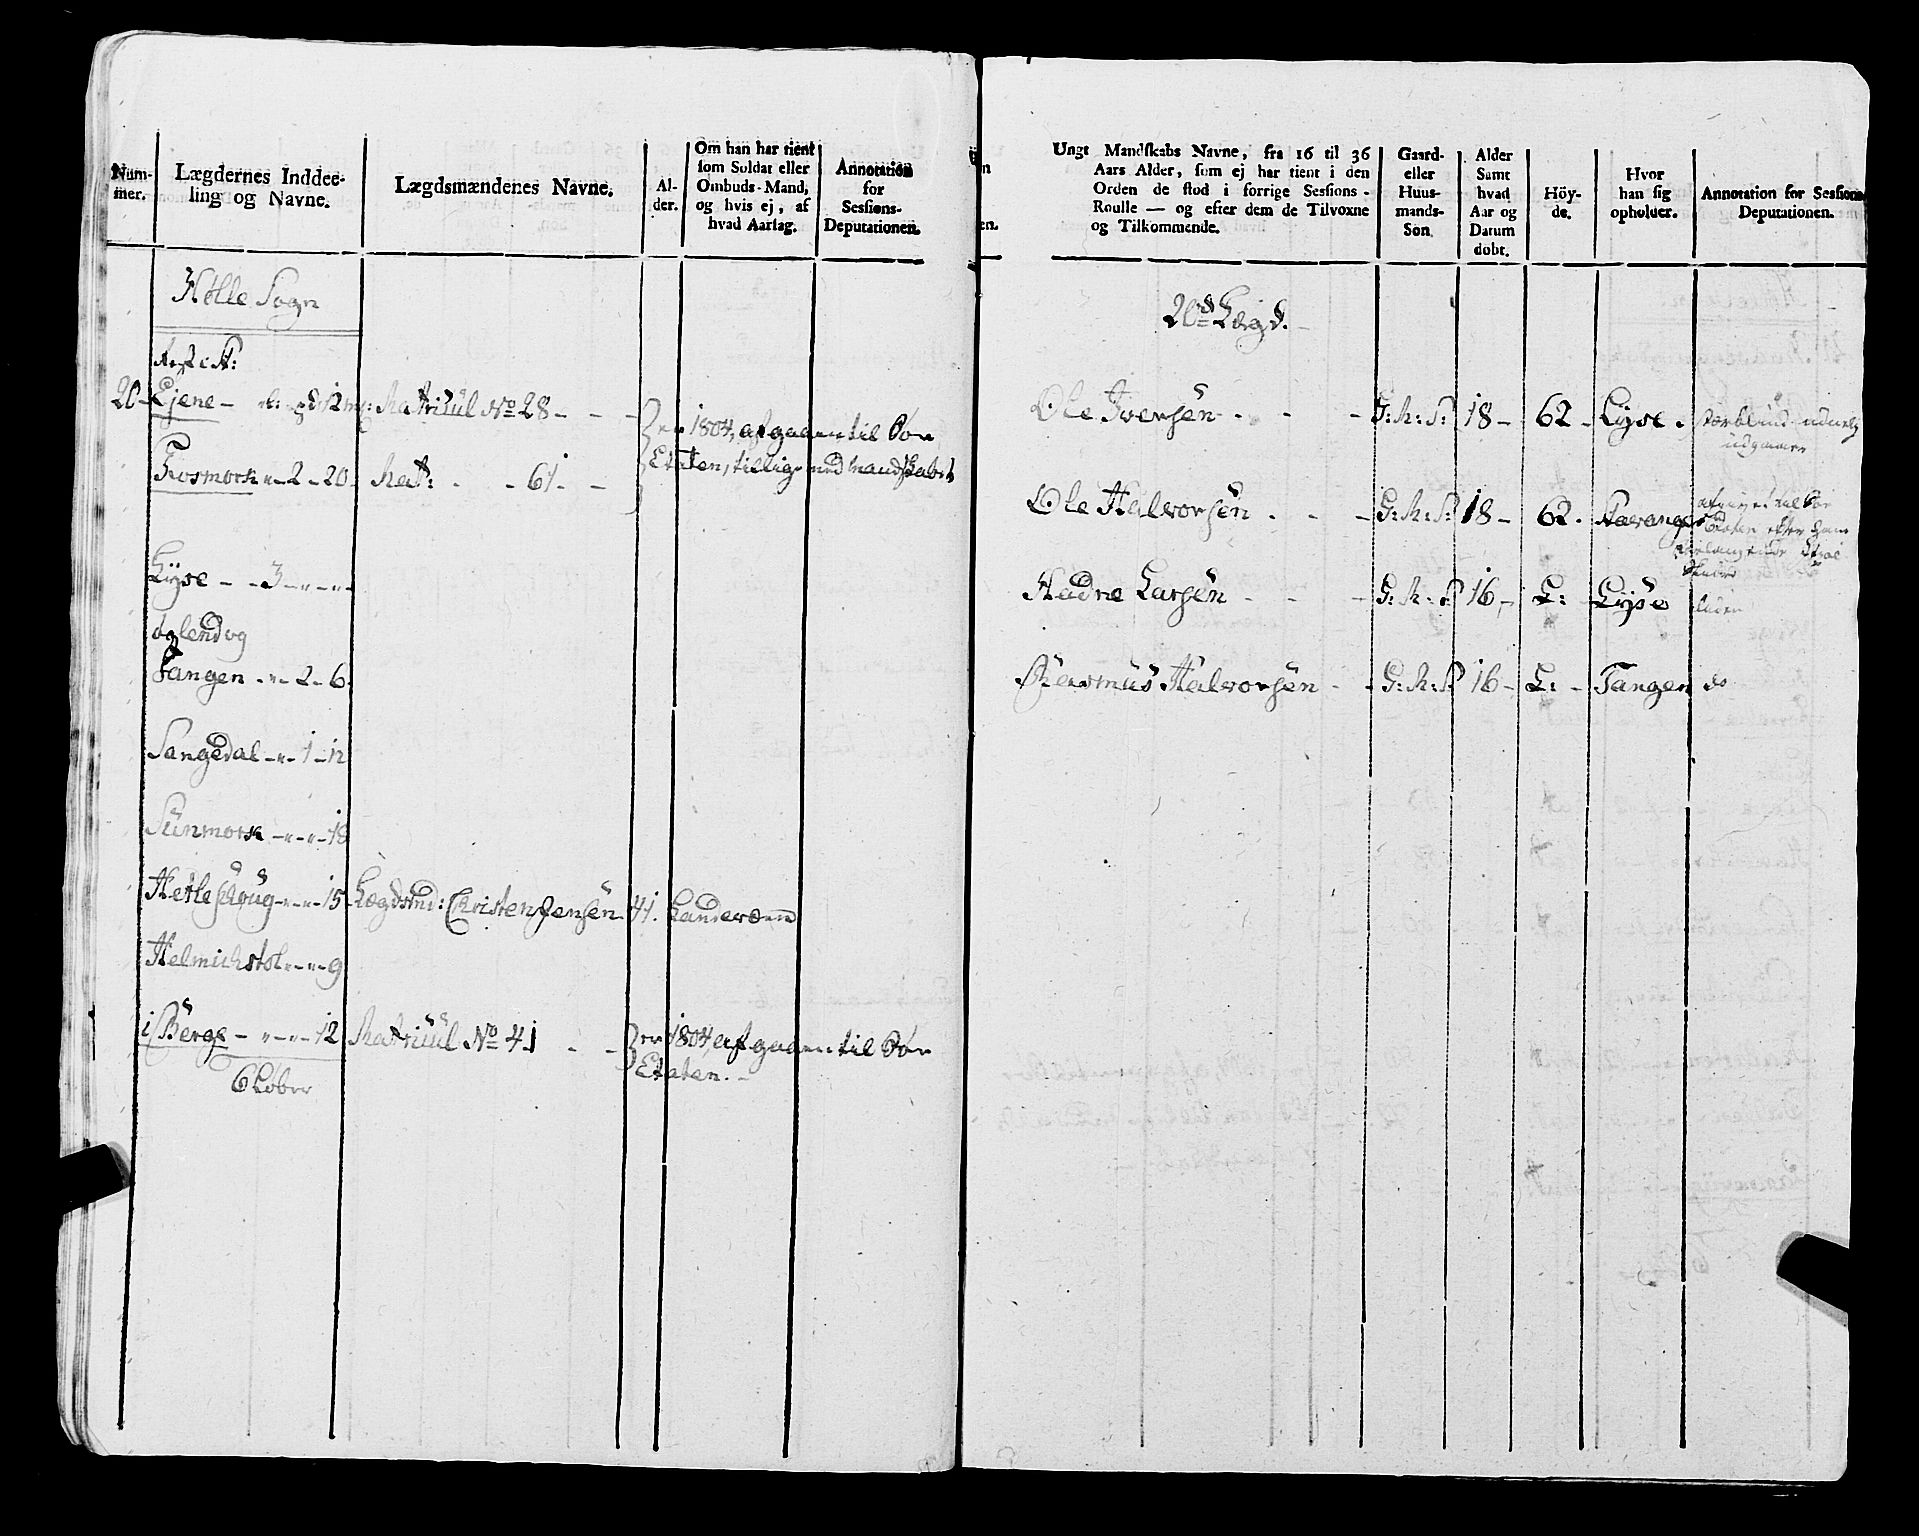 Num-
mer.
Lægdernes Inddee-
ling og Navne.
Lægdsmændenes Navne.
Al-
der.
Om han har tient
som Soldat eller
Ombuds-Mand,
og hvis ej, af
hvad Aarsag.
Annotation
for
Sessions-
Deputationen.
Hølle Sogn
20 - Ejene - Matriüul No 28 - - -
er 1804, afgaaen til Søe
Etaten, tillige med Mandskabet
Fosmork - 2 - 20 Mat: - - 61 - -
Lÿse - - 3 - - -
Tangen - - 2 - 6
Sangedal - - 1 - 12
Sünmork - - - 18
Hetleskoug - - - 15 Lægdsmd: Christen Jensen 41. Landeværn
Helmichstøl - - - 9
i Berge - - - - 12 Matriüul No 41 - -
er 1804, afgaaen til Søe
Etaten. -
6 Løber
en
en.
Ungt Mandskabs Navne, fra 16 til 36
Aars Alder, som ej har tient i den
Orden de stod i forrige Sessions-
Roulle — og efter dem de Tilvoxne
og Tilkommende.
Gaard-
eller
Huus-
mands-
Søn.
Alder
Samt
hvad
Aar og
Datum
døbt.
Höy-
de.
Hvor
han sig
opholder.
Annotation for Sessions-
Deputationen.
20de Lægd. -
Ole Iversen - - - G: M: S: 18 - 62 - Lÿse. stærblind uduelig
udgaaer
Ole Halvorsen - - - G: M: S: 18 - 62. Stavanger
Hadne Larsen - - - G: M: S 16 - L: - Lÿse liden
Rasmus Halvorsen - - G: M: S 16 - L: - Tangen do